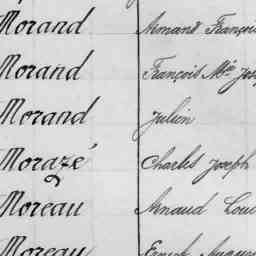 Morand Armand François
Morand François Mie Jos
Morand Julien
Morazé Charles Joseph
Moreau Arnaud Loui
Moreau Ernest Augus